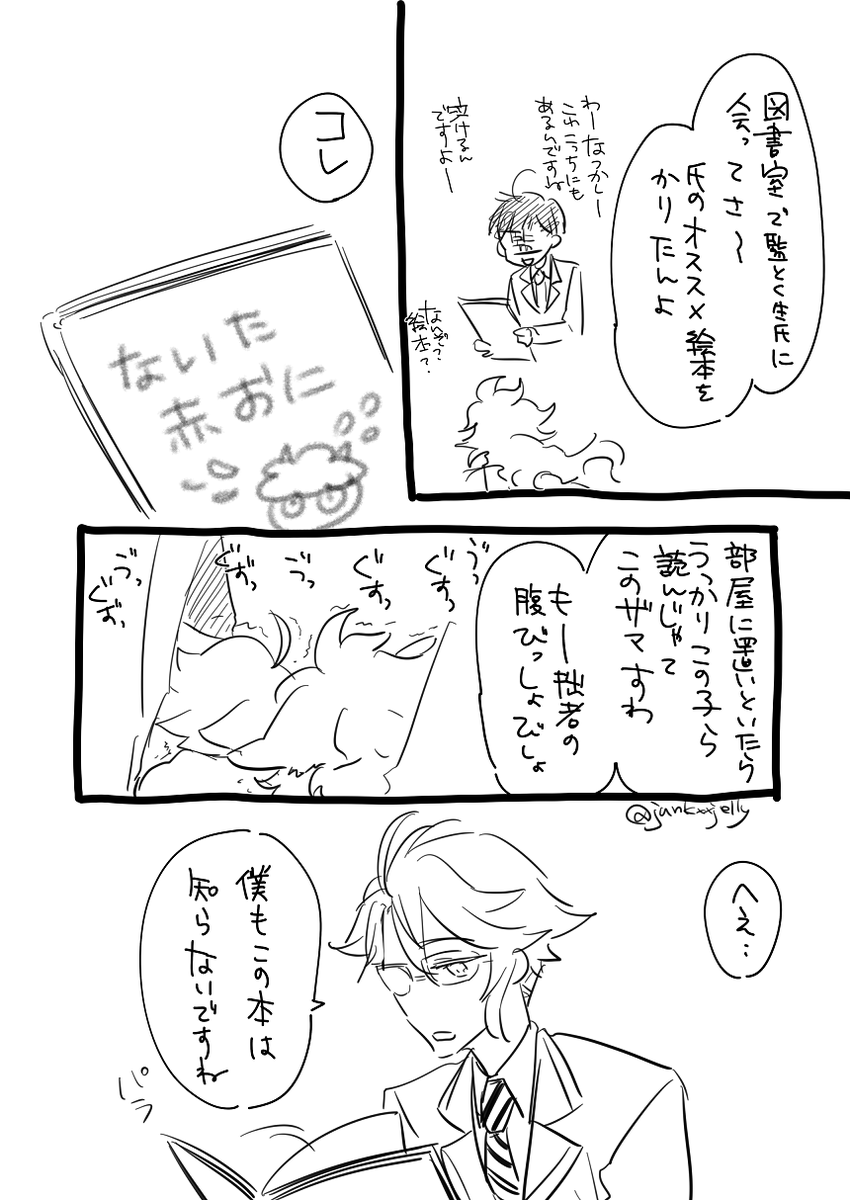 図書室で監とく生氏に
会ってさ〜
氏のオススメ絵本を
かりたんよ
わーなつかしー
これこっちにも
あるんですね
泣けるん
ですよー
監
なんぞって
絵本て?
コレ
ないた
赤おに
部屋に置いといたら
うっかりこの子ら
読んじゃて
このザマすわ
もー拙者の
腹びっしょびしょ
ぐすっ
ぐすっ
ぐずっ
@junkxxjelly
へえ…
僕もこの本は
知らないですね
パラ